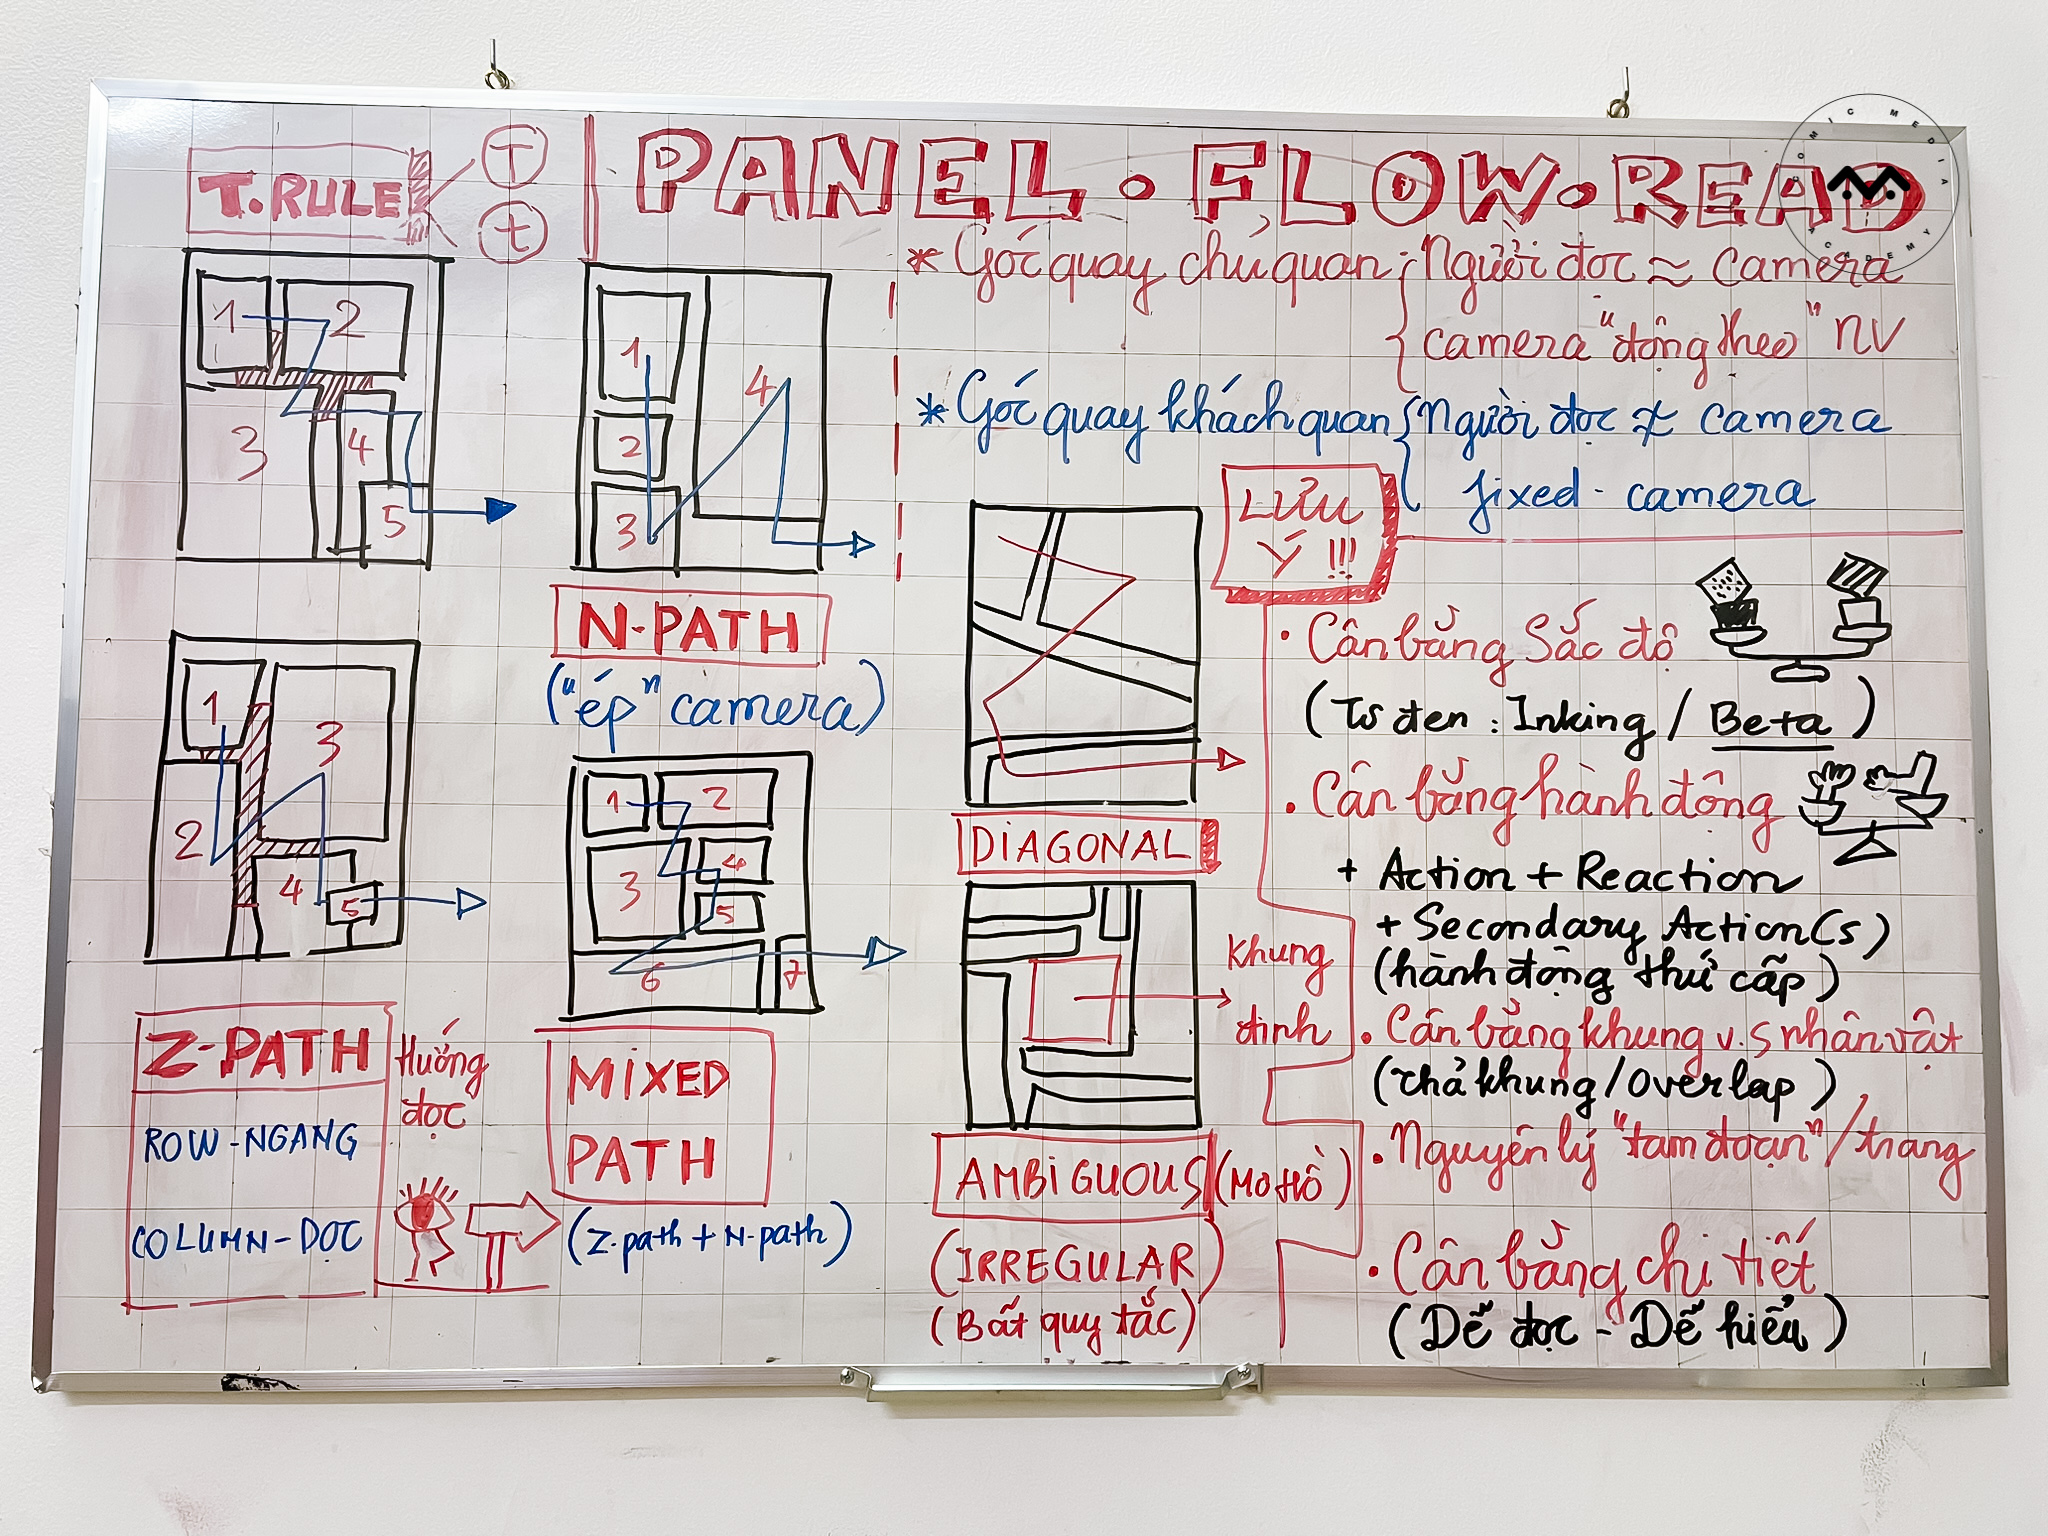 T.RULE
T
t
PANEL.FLOW.READ
COMIC MEDIA ACADEMY
* Góc quay chủ quan: Người đọc ≈ camera
camera "động theo" NV
* Góc quay khách quan Người đọc ≠ camera
fixed - camera
1 2
3 4
5
1
2
3
4
N-PATH
("ép" camera)
1
2
3
4
5
Z-PATH
ROW-NGANG
COLUMN-DỌC
Hướng
đọc
1 2
3 4
5
6 7
MIXED
PATH
(Z-path + N-path)
DIAGONAL
Khung
đinh
AMBIGUOUS (MƠ HỒ)
(IRREGULAR)
(Bất quy tắc)
LƯU
Ý !!!
• Cân bằng Sắc độ
(Ts đen : Inking / Beta)
• Cân bằng hành động
+ Action + Reaction
+ Secondary Action(s)
(hành động thứ cấp)
• Cân bằng khung v.s nhân vật
(Thả khung / Overlap)
• Nguyên lý "tam đoạn" / trang
• Cân bằng chi tiết
(Dễ đọc - Dễ hiểu)